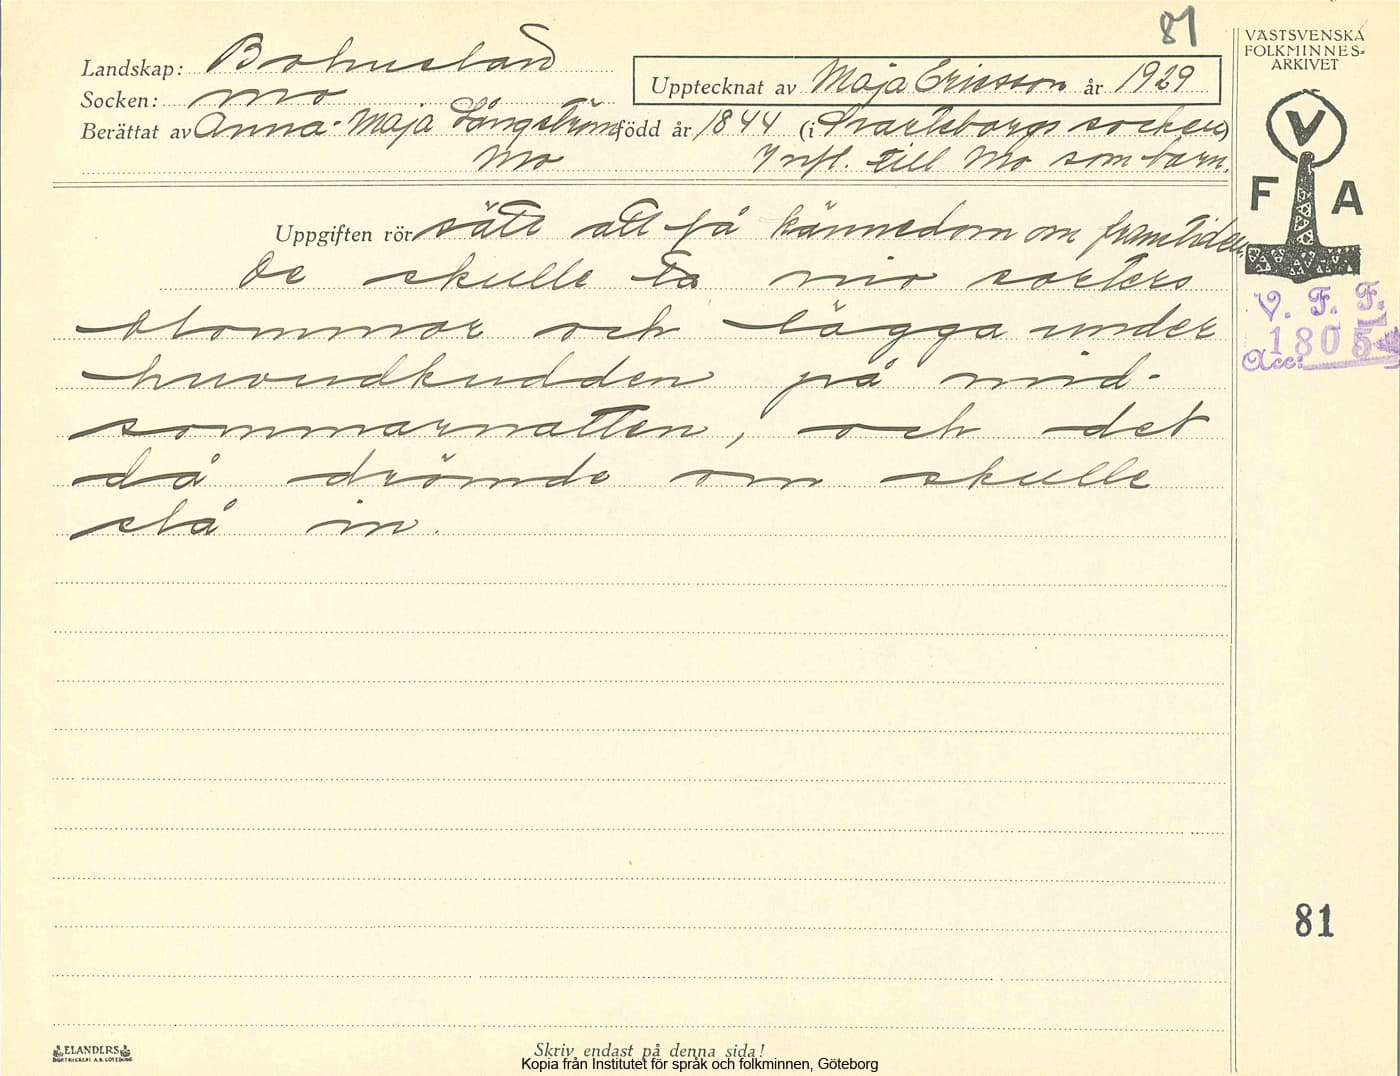 81
Landskap: Bohuslän
Socken: Mo
Upptecknat av Maja Ericsson år 1929
Berättat av Anna-Maja Långström född år 1844 (i Svarteborgs socken)
Mo Infl. till Mo som barn.
Uppgiften rör sätt att få kännedom om framtiden.
De skulle ta nio sorters
blommor och lägga under
huvudkudden på mid-
sommarnatten, och det
då drömde om skulle
slå in.
VÄSTSVENSKA
FOLKMINNES-
ARKIVET
V
F A
V. F. F.
1805
Acc:
81
ELANDERS
BOKTRYCKERI A.B. GÖTEBORG
Skriv endast på denna sida!
Kopia från Institutet för språk och folkminnen, Göteborg